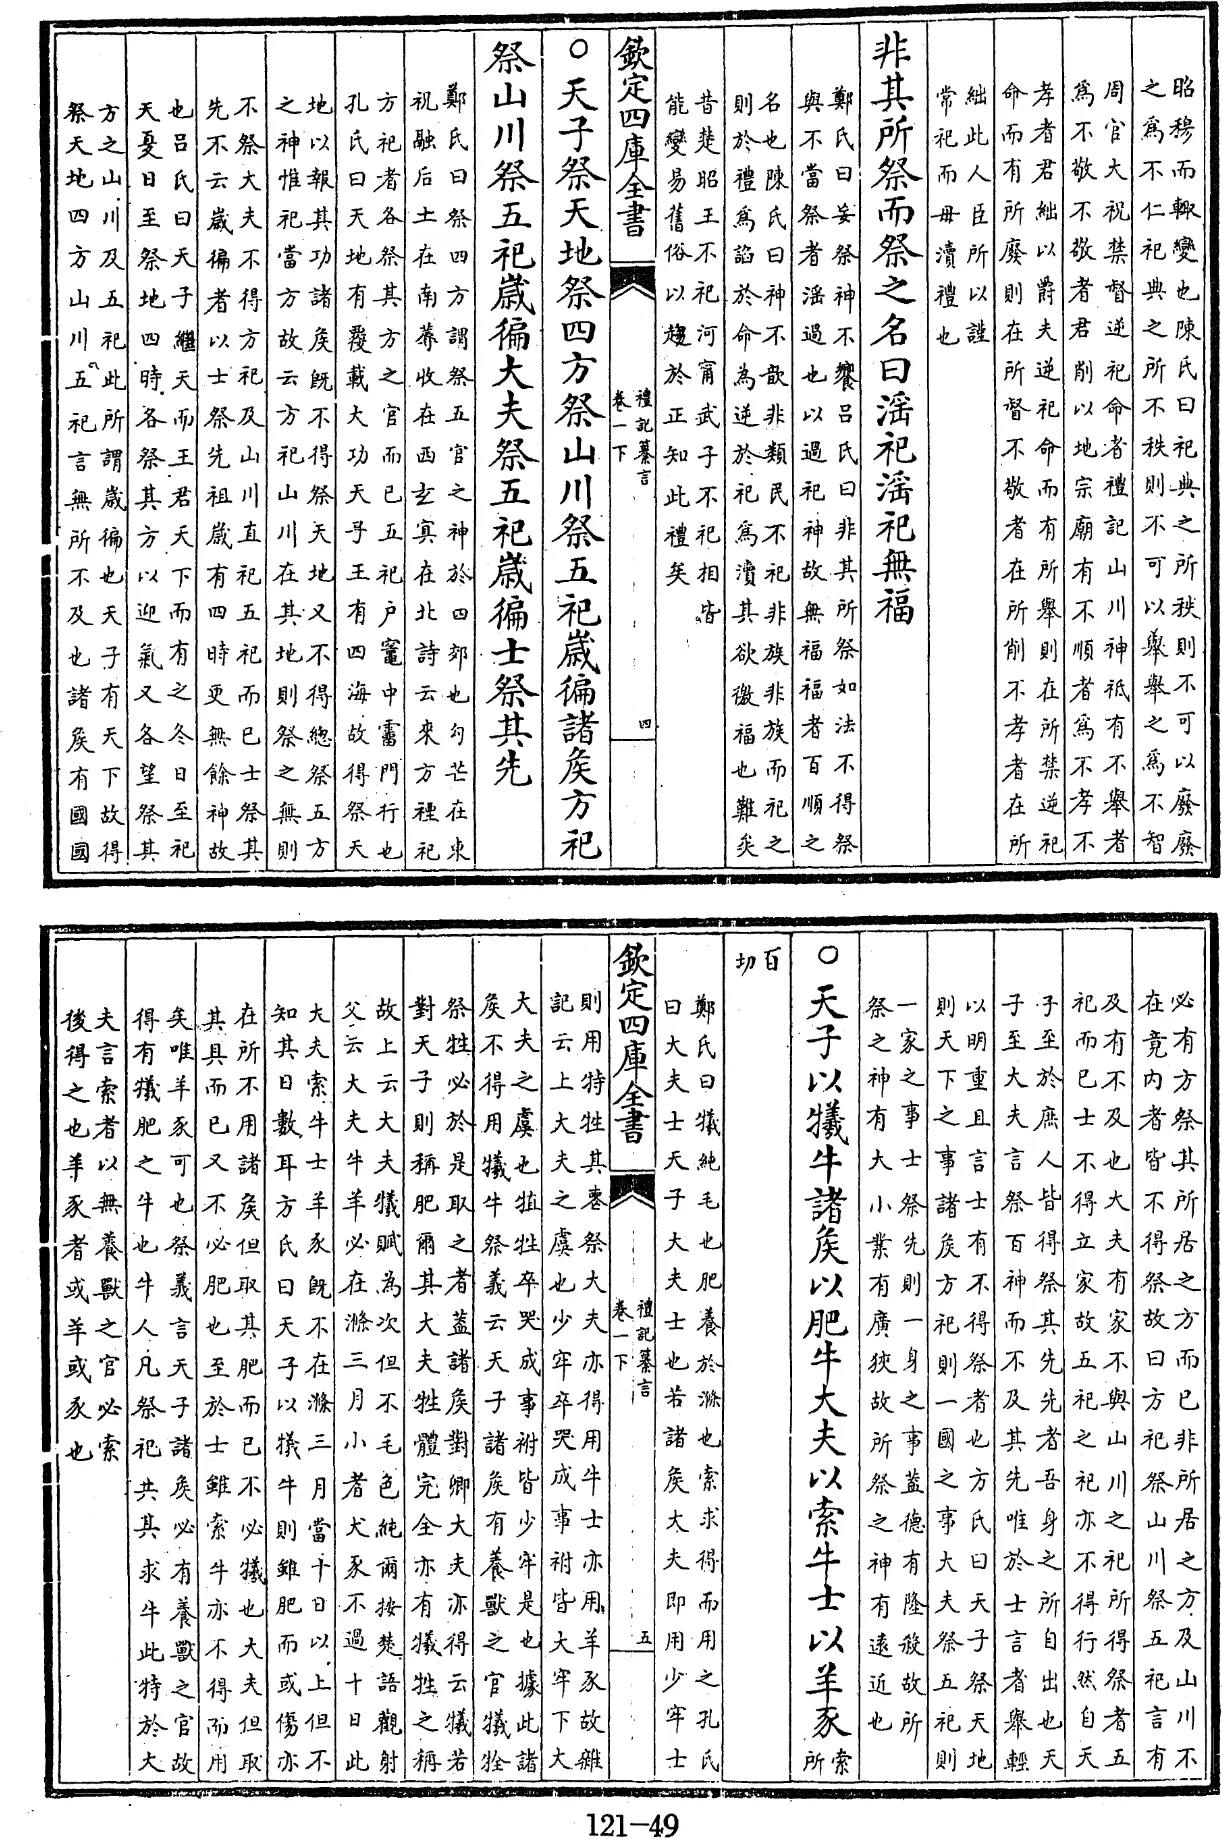 昭穆而輙變也陳氏曰祀典之所秩則不可以廢廢
之為不仁祀典之所不秩則不可以舉舉之為不智
周官大祝禁督逆祀命者禮記山川神祇有不舉者
為不敬不敬者君削以地宗廟有不順者為不孝不
孝者君絀以爵夫逆祀命而有所舉則在所禁逆祀
命而有所廢則在所督不敬者在所削不孝者在所
絀此人臣所以謹
常祀而毋瀆禮也
非其所祭而祭之名曰淫祀淫祀無福
鄭氏曰妄祭神不饗吕氏曰非其所祭如法不得祭
與不當祭者淫過也以過祀神故無福福者百順之
名也陳氏曰神不歆非類民不祀非族非族而祀之
則於禮為諂於命為逆於祀為瀆其欲徼福也難矣
昔楚昭王不祀河甯武子不祀相皆
能變易舊俗以趨於正知此禮矣
欽定四庫全書
禮記纂言
卷一下
四
○天子祭天地祭四方祭山川祭五祀歲徧諸侯方祀
祭山川祭五祀歲徧大夫祭五祀歲徧士祭其先
鄭氏曰祭四方謂祭五官之神於四郊也勾芒在東
祝融后土在南蓐收在西𤣥冥在北詩云來方禋祀
方祀者各祭其方之官而已五祀户竈中霤門行也
孔氏曰天地有覆載大功天子王有四海故得祭天
地以報其功諸侯既不得祭天地又不得總祭五方
之神惟祀當方故云方祀山川在其地則祭之無則
不祭大夫不得方祀及山川直祀五祀而已士祭其
先不云歲徧者以士祭先祖歲有四時更無餘神故
也吕氏曰天子繼天而王君天下而有之冬日至祀
天夏日至祭地四時各祭其方以迎氣又各望祭其
方之山川及五祀此所謂歲徧也天子有天下故得
祭天地四方山川五祀言無所不及也諸侯有國國
必有方祭其所居之方而已非所居之方及山川不
在竟内者皆不得祭故曰方祀祭山川祭五祀言有
及有不及也大夫有家不與山川之祀所得祭者五
祀而已士不得立家故五祀之祀亦不得行然自天
子至於庶人皆得祭其先先者吾身之所自出也天
子至大夫言祭百神而不及其先唯於士言者舉輕
以明重且言士有不得祭者也方氏曰天子祭天地
則天下之事諸侯方祀則一國之事大夫祭五祀則
一家之事士祭先則一身之事蓋德有隆殺故所
祭之神有大小業有廣狹故所祭之神有逺近也
○天子以犧牛諸侯以肥牛大夫以索牛士以羊豕索
所
百
切
鄭氏曰犧純毛也肥養於滌也索求得而用之孔氏
曰大夫士天子大夫士也若諸侯大夫即用少牢士
欽定四庫全書
禮記纂言
卷一下
五
則用特牲其喪祭大夫亦得用牛士亦用羊豕故雜
記云上大夫之虞也少牢卒哭成事祔皆大牢下大
大夫之虞也犆牲卒哭成事祔皆少牢是也據此諸
侯不得用犧牛祭義云天子諸侯有養獸之官犧牷
祭牲必於是取之者蓋諸侯對卿大夫亦得云犧若
對天子則稱肥爾其大夫牲體完全亦有犧牲之稱
故上云大夫犧賦為次但不毛色純爾按楚語觀射
父云大夫牛羊必在滌三月小者犬豕不過十日此
大夫索牛士羊豕既不在滌三月當十日以上但不
知其日數耳方氏曰天子以犧牛則雖肥而或傷亦
在所不用諸侯但取其肥而已不必犧也大夫但取
其具而已又不必肥也至於士雖索牛亦不得而用
矣唯羊豕可也祭義言天子諸侯必有養獸之官故
得有犧肥之牛也牛人凡祭祀共其求牛此特於大
夫言索者以無養獸之官必索
後得之也羊豕者或羊或豕也
121-49